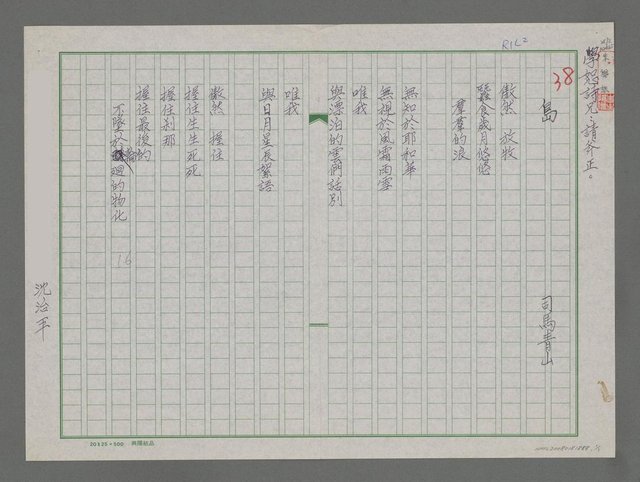 學恕詩兄：請斧正。
R162
38
島
司馬青山
傲然 放牧
蠶食歲月悠悠
羣羣的浪
無知於耶和華
無視於風霜雨雪
唯我
與漂泊的雲們話別
唯我
與日月星辰絮語
傲然 握住
握住生生死死
握住剎那
握住最後的
不墜於輪廻的物化
16
沈治平
20×25=500